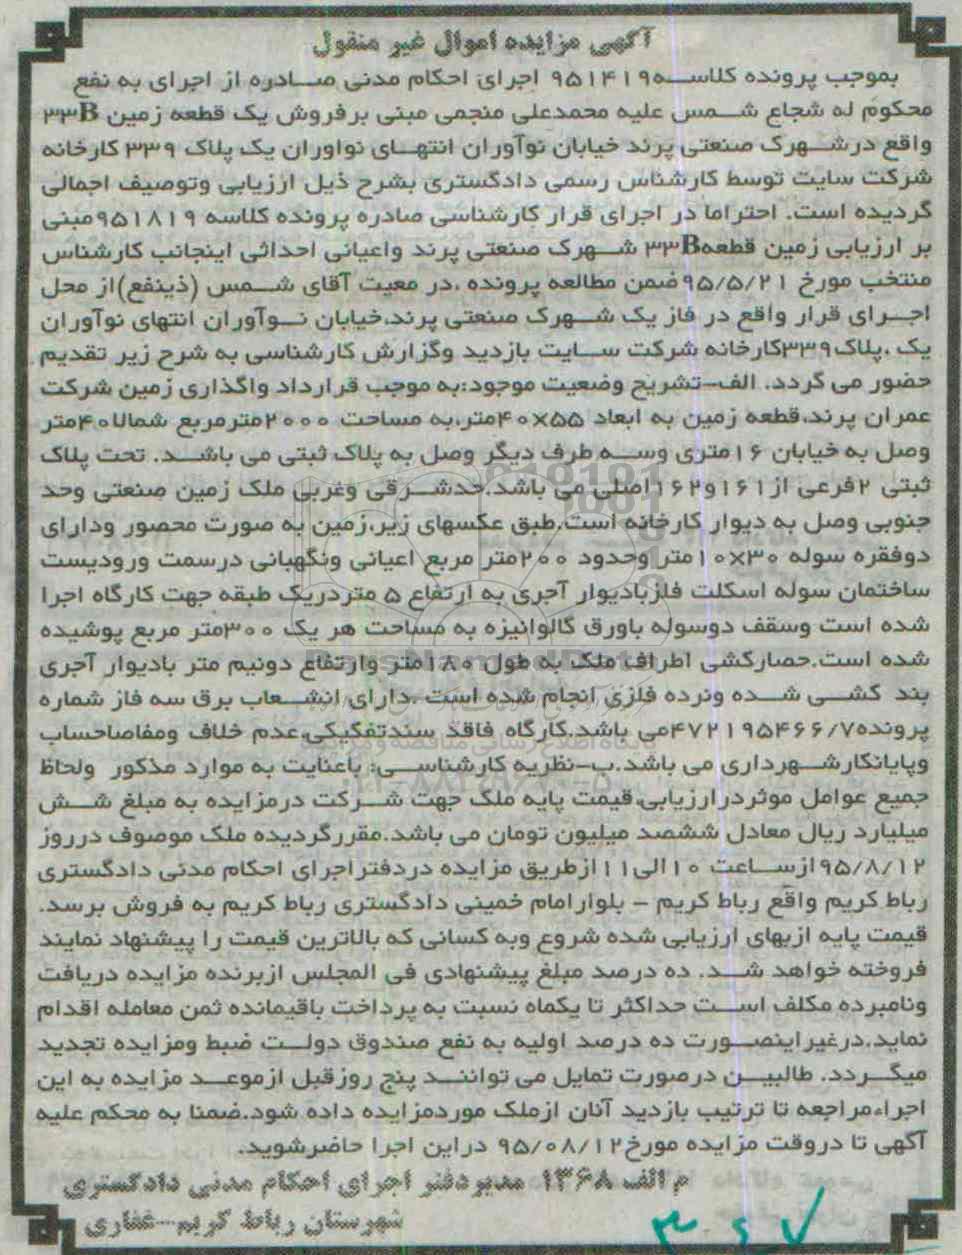 آگهی مزایده اموال غیر منقول
بموجب پرونده کلاسه۹۵۱۴۱۹ اجرای احکام مدنی صادره از اجرای به نفع
محکوم له شجاع شمس علیه محمدعلی منجمی مبنی برفروش یک قطعه زمین ۳۳B
واقع درشهرک صنعتی پرند خیابان نوآوران انتهای نواوران یک پلاک ۳۳۹ کارخانه
شرکت سایت توسط کارشناس رسمی دادگستری بشرح ذیل ارزیابی وتوصیف اجمالی
گردیده است. احتراما در اجرای قرار کارشناسی صادره پرونده کلاسه ۹۵۱۸۱۹مبنی
بر ارزیابی زمین قطعه۳۳B شهرک صنعتی پرند واعیانی احداثی اینجانب کارشناس
منتخب مورخ ۹۵/۵/۲۱ضمن مطالعه پرونده ،در معیت آقای شمس (ذینفع)از محل
اجرای قرار واقع در فاز یک شهرک صنعتی پرند،خیابان نوآوران انتهای نوآوران
یک ،پلاک۳۳۹کارخانه شرکت سایت بازدید وگزارش کارشناسی به شرح زیر تقدیم
حضور می گردد. الف-تشریح وضعیت موجود:به موجب قرارداد واگذاری زمین شرکت
عمران پرند،قطعه زمین به ابعاد ۵۵×۴۰متر،به مساحت ۲۰۰۰مترمربع شمالا۴۰متر
وصل به خیابان ۱۶متری وسه طرف دیگر وصل به پلاک ثبتی می باشد. تحت پلاک
ثبتی ۲فرعی از۱۶۱و۱۶۲اصلی می باشد.حدشرقی وغربی ملک زمین صنعتی وحد
جنوبی وصل به دیوار کارخانه است.طبق عکسهای زیر،زمین به صورت محصور ودارای
دوفقره سوله ۳۰×۱۰متر وحدود ۲۰۰متر مربع اعیانی ونگهبانی درسمت ورودیست
ساختمان سوله اسکلت فلزبادیوار آجری به ارتفاع ۵ متردریک طبقه جهت کارگاه اجرا
شده است وسقف دوسوله باورق گالوانیزه به مساحت هر یک ۳۰۰متر مربع پوشیده
شده است.حصارکشی اطراف ملک به طول ۱۸۰متر وارتفاع دونیم متر بادیوار آجری
بند کشی شده ونرده فلزی انجام شده است .دارای انشعاب برق سه فاز شماره
پرونده۴۷۲۱۹۵۴۶۶/۷می باشد.کارگاه فاقد سندتفکیکی،عدم خلاف ومفاصاحساب
وپایانکارشهرداری می باشد.ب-نظریه کارشناسی: باعنایت به موارد مذکور ولحاظ
جمیع عوامل موثردرارزیابی،قیمت پایه ملک جهت شرکت درمزایده به مبلغ شش
میلیارد ریال معادل ششصد میلیون تومان می باشد.مقررگردیده ملک موصوف درروز
۹۵/۸/۱۲ازساعت ۱۰الی۱۱ازطریق مزایده دردفتراجرای احکام مدنی دادگستری
رباط کریم واقع رباط کریم – بلوارامام خمینی دادگستری رباط کریم به فروش برسد.
قیمت پایه ازبهای ارزیابی شده شروع وبه کسانی که بالاترین قیمت را پیشنهاد نمایند
فروخته خواهد شد. ده درصد مبلغ پیشنهادی فی المجلس ازبرنده مزایده دریافت
ونامبرده مکلف است حداکثر تا یکماه نسبت به پرداخت باقیمانده ثمن معامله اقدام
نماید.درغیراینصورت ده درصد اولیه به نفع صندوق دولت ضبط ومزایده تجدید
میگردد. طالبین درصورت تمایل می توانند پنج روزقبل ازموعد مزایده به این
اجراءمراجعه تا ترتیب بازدید آنان ازملک موردمزایده داده شود.ضمنا به محکم علیه
آگهی تا دروقت مزایده مورخ۹۵/۰۸/۱۲ دراین اجرا حاضرشوید.
م الف ۱۳۶۸ مدیردفتر اجرای احکام مدنی دادگستری
شهرستان رباط کریم-غفاری